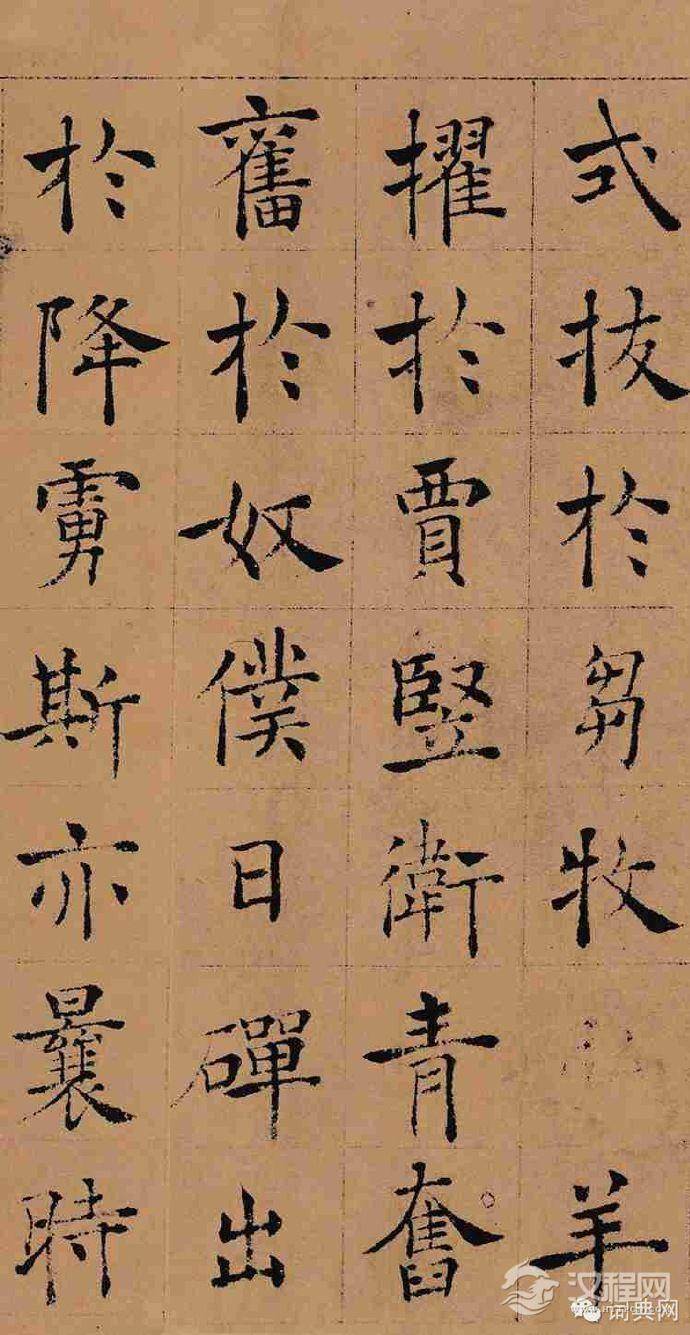 式拔於芻牧羊
擢於賈豎衛青奮
奮於奴僕日磾出
於降虜斯亦曩時
汉程网
词典网